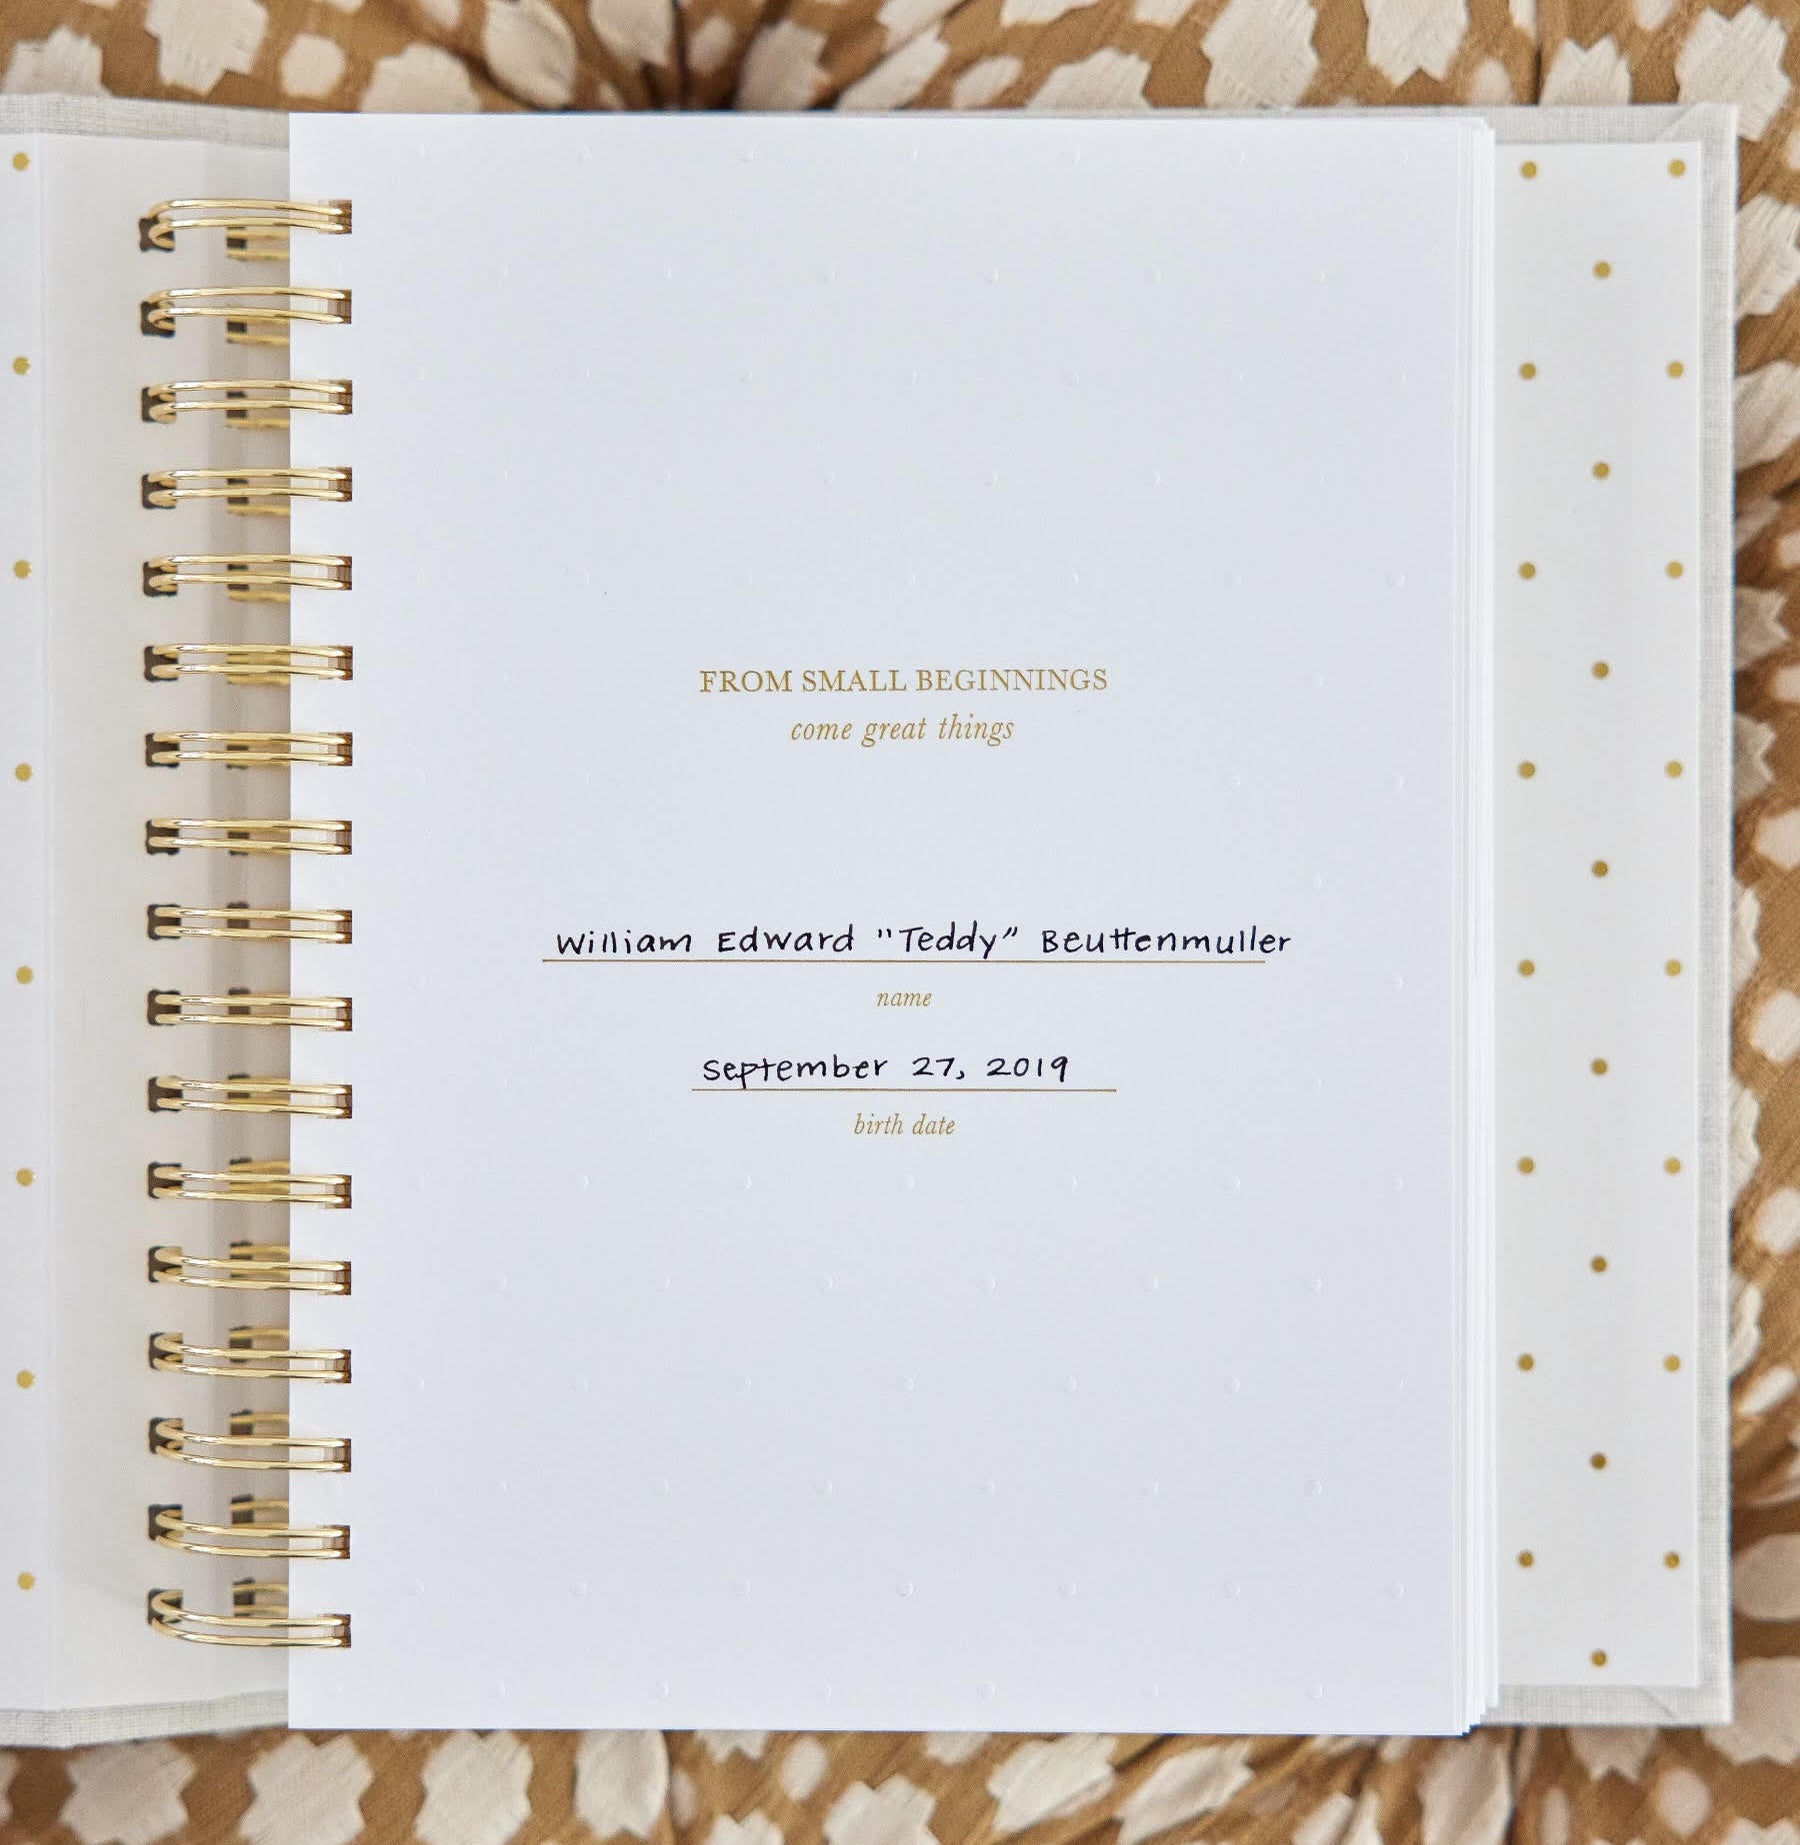 FROM SMALL BEGINNINGS
come great things
William Edward "Teddy" Beuttenmuller
name
September 27, 2019
birth date